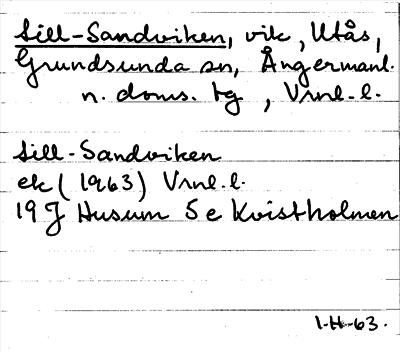 Sill-Sandviken, vik, Utås,
Grundsunda sn, Ångermanl.
n. doms. tg, Vrnl. l.
Sill-Sandviken
ek (1963) Vrnl. l.
19 J Husum 5 e Kvistholmen
1-H-63.